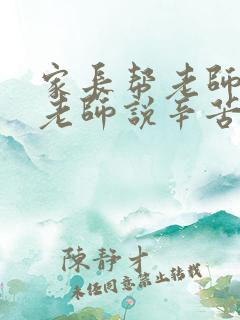 家長帮老師
老師說辛苦
陳靜才
未经同意禁止转载